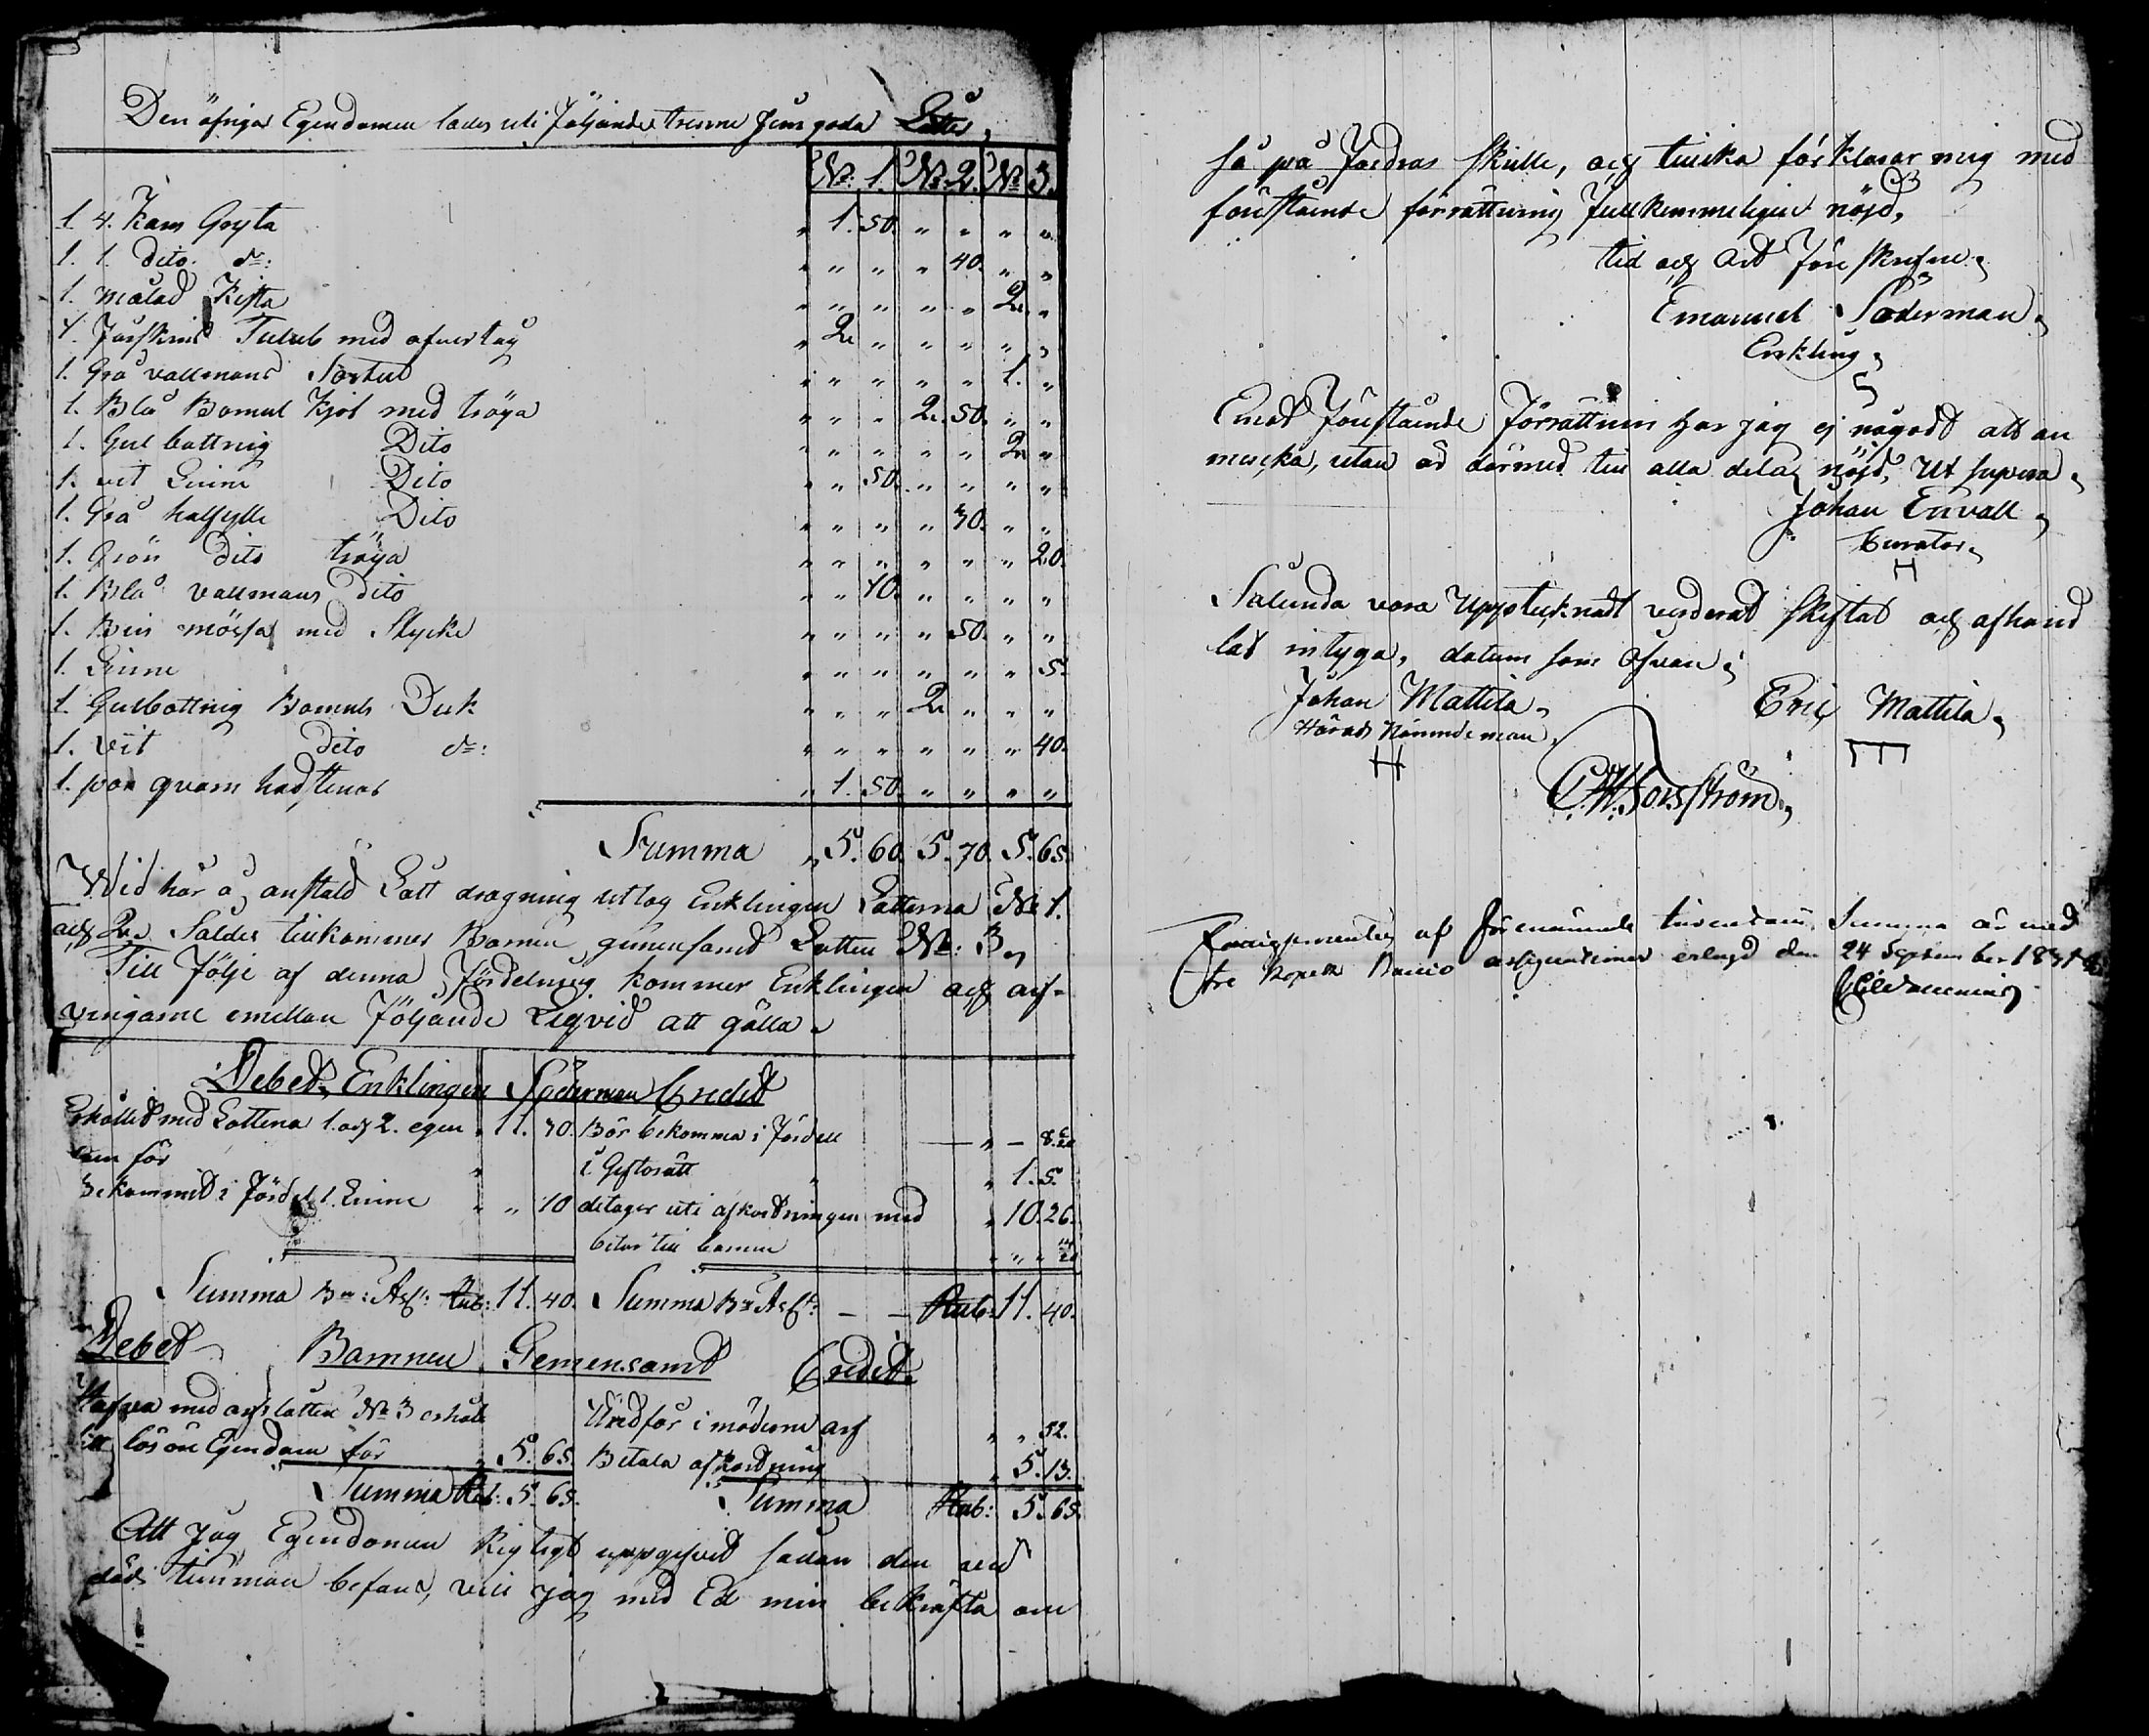 Den öfriga Egendomen lades uti följande trenne jemgoda Låtter,
N:o 1. N:o 2. N:o 3.
1. 4. Kans Gryta " 1. 50. " " " "
1. 1. dito d:o: " " " " 40. " "
1. målad Kista " " " " " 2. "
1. fårskins Tulub med öfvertyg " 2. " " " " "
1. Grå vallmans Sortut " " " " " 1. "
1. Blå Bomul Kjol med tröya " " " 2. 50. " "
1. Gul bottnig Dito " " " " " 2. "
1. vit Linne Dito " " 50. " " " "
1. Grå halfylle Dito " " " " 30. " "
1. Grön dito tröya " " " " " " 20.
1. Blå vallmans Dito " " 10. " " " "
1. Bin mössa med Stycke " " " " 50. " "
1. Linne " " " " " " 5.
1. Gulbottnig Bomuls Duk " " " 2. " " "
1. Vit Dito d:o: " " " " " " 40.
1. par qvarn hadstenar " 1. 50. " " " "
Summa " 5. 60. 5. 70. 5. 65.
Wid här å anstäld Lått dragning uttog Enklingen Låtterna N:o 1.
och 2. Således tillkommer Barnen gemensamt Låtten N:o: 3.
Till följe af denna fördelning kommer Enklingen och arf-
vingarne emellan följande Liqvid att gälla.
Debet, Enklingen Söderman Credit
Erhållit med Låtterna 1. och 2. egen " 11. 30. Bör bekomma i fördel " – 8.
dom för " i Giftorätt " " 1. 5.
Bekommit i fördel 1. Linne " " 10 deltager uti afkortningen med " 10. 26.
betar till barnen " " "
Summa B:co: Ass: Rub: 11. 40. Summa B:co Ass: – – Rub: 11. 40.
Debet Barnnen Gemensamt Credit
Hafva med arfslåtten N:o 3 erhål
lit lösöre Egendom för " 5. 65. Undfår i möderne arf " " 52.
Betala afkortning " 5. 13.
Summa Rub: 5. 65. Summa Rub: 5. 65.
Att jag Egendomen Rigtigt uppgifvit sådan den ved
döds timman befans, vill jag med Ed min bekräfta om
så på fordras skulle, och tillika förklarar mig med
förestående förrättning fullkommeligen nöjd,
tid och Ort föreskrefne.
Emanuel Söderman,
Enkling,
Emot förestående förrättnin har jag ej någodt att an
mercka, utan är därmed till alla delar nöjd, Ut supra.
Johan Envall,
Curator,
Sålunda vara Upptecknadt värderat skiftat och afhand
lat intyga, datum som ofvan,
Johan Mattila, Eric Mattila,
Härads Nämndeman,
C. W. Forsström,
af förenämnde Summa är med
tre Kopek Banco assignationer erlagd den 24 September 1831